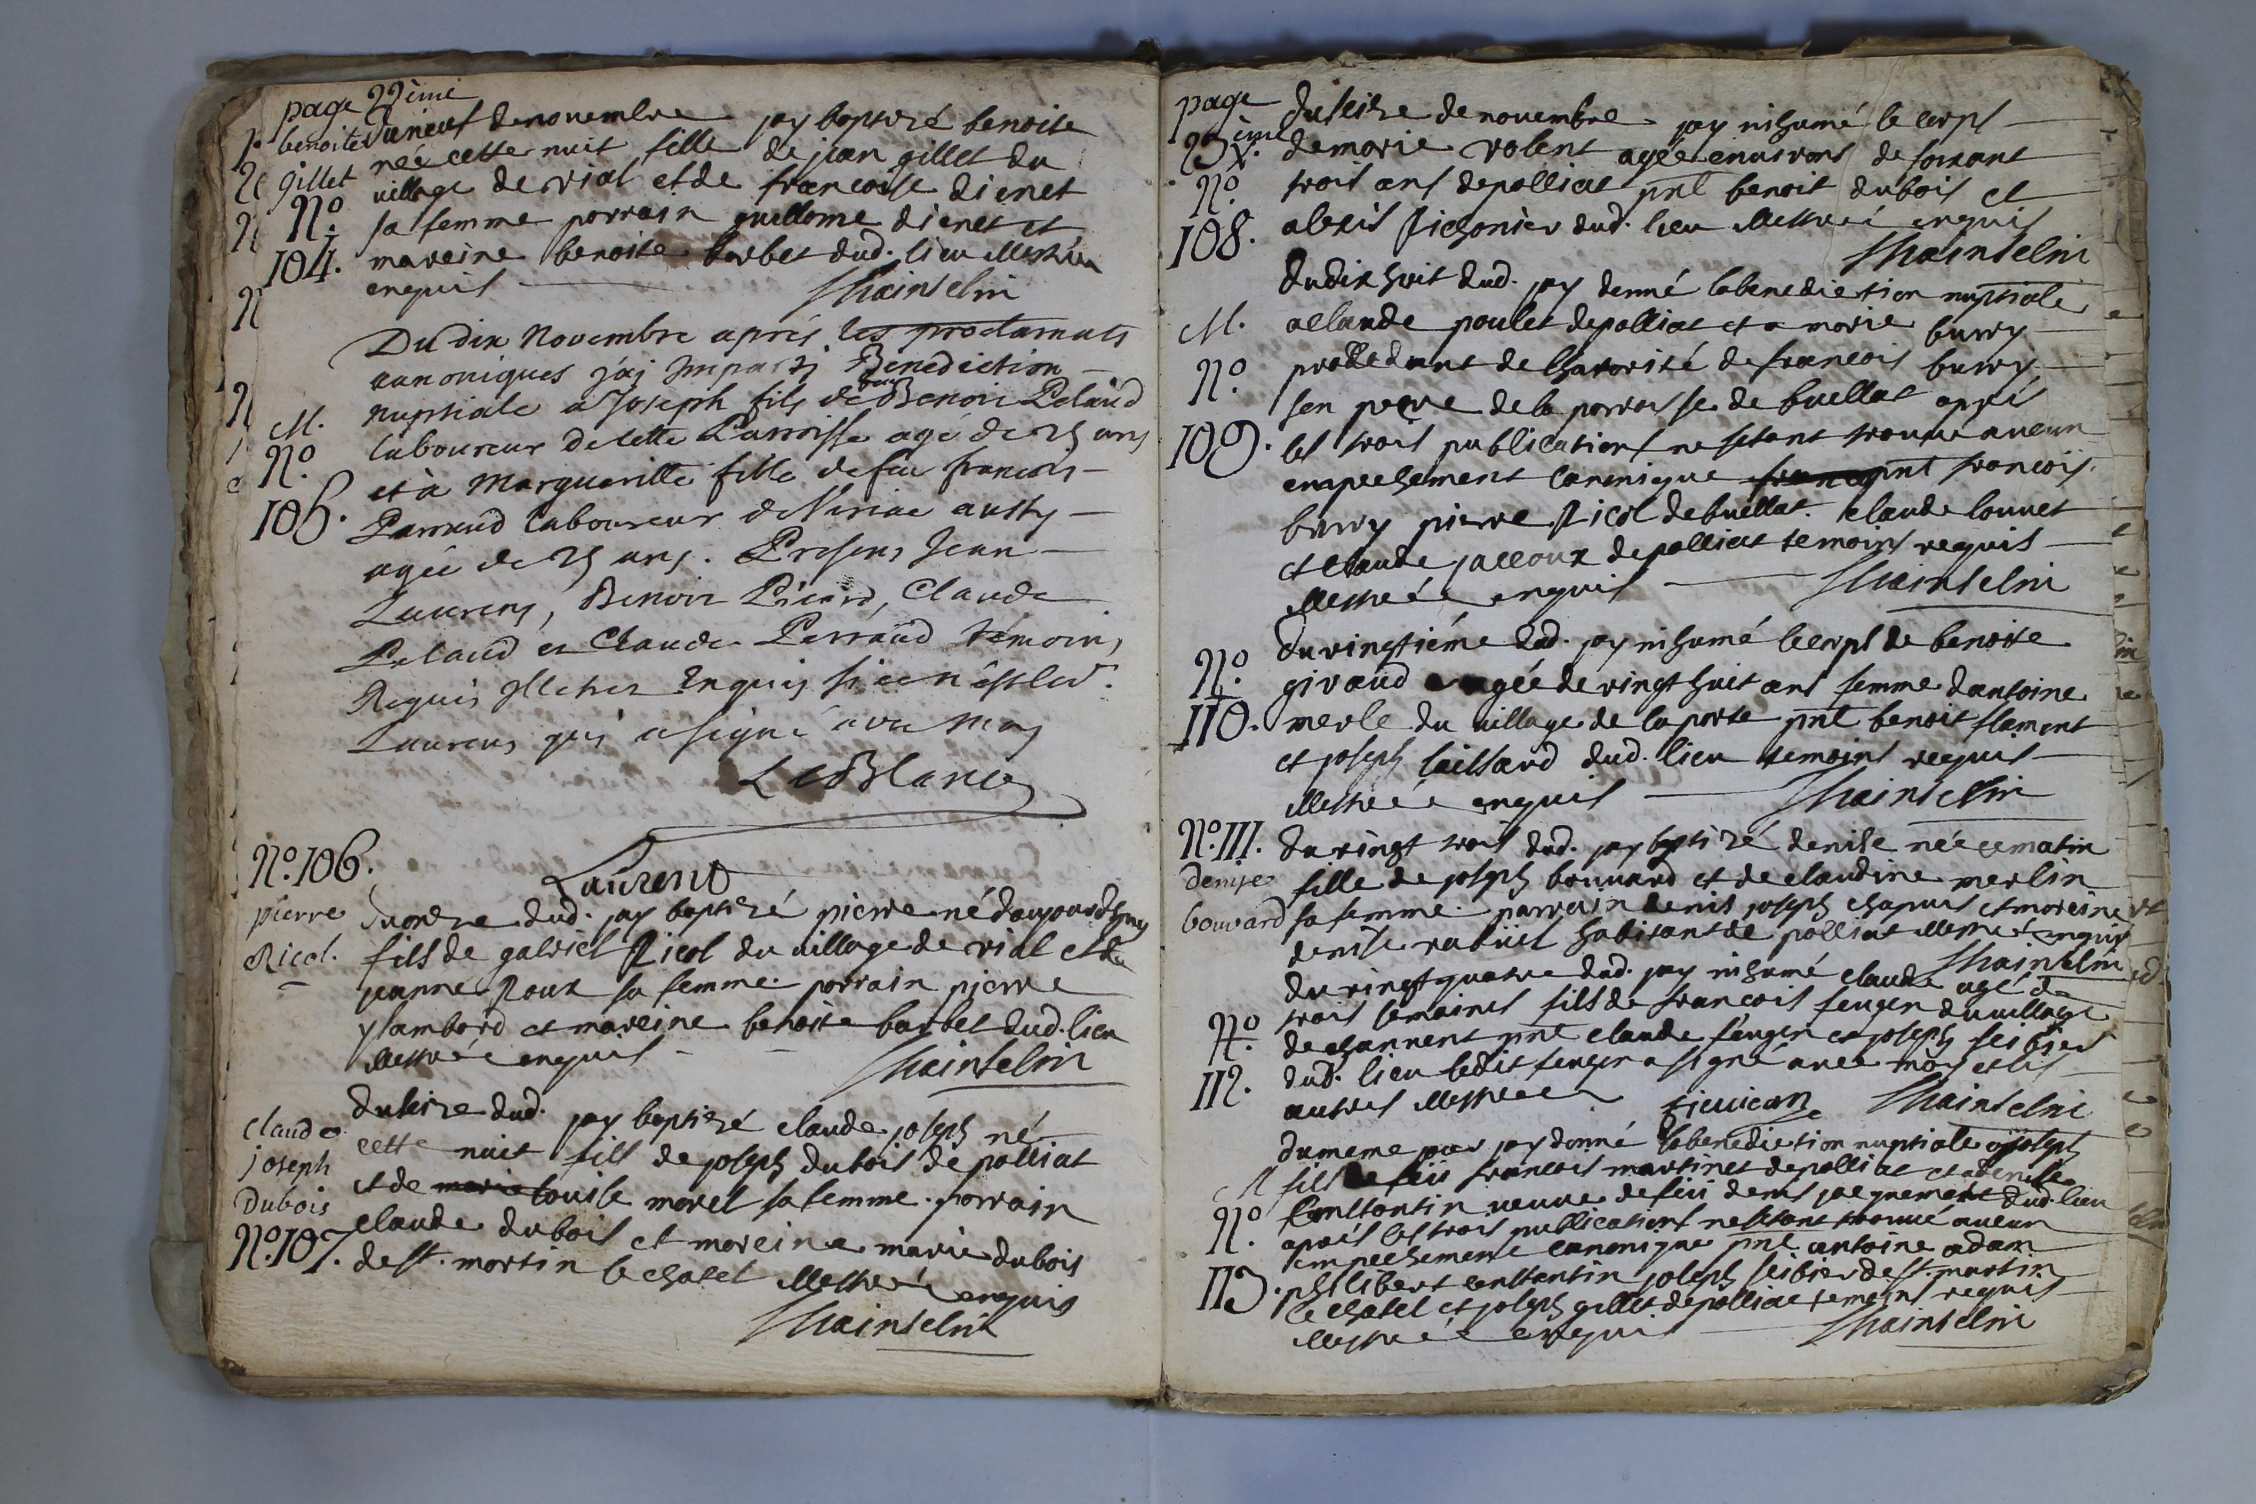 page 22ème
benoite
gillet
N°.
104.
Du neuf de novembre jay baptizé benoite
née cette nuit fille de jean gillet du
village de vial et de francoise dienet
sa femme parrain guillome dienet et
mareine benoite barbet dud. lieu illettrée
enquis
Chainselin
M.
N°.
105.
Du dix Novembre aprés les proclamats
canoniques j'aj Imparti Benediction
nuptiale a Joseph fils de Benoi Pelaud
laboureur de cette Parroisse agé de 25 ans
et à Margueritte fille de feu francois
Parraud laboureur de Viriac aussy
agée de 25 ans. Presens Jean
Laurens, Benoit Picard, Claude
Pelaud et Claude Perraud témoins
Requis Illeteres Enquis si ce n'est led.
Laurens qui a signé avec moy
LeBlanc
Laurent
N°. 106.
pierre
Ricol.
Du onze dud. jay baptizé pierre né daujourdhuy
fils de gabriel Ricol du village de vial et de
jeanne Roux sa femme. parrain pierre
ysambard et mareine benoite barbet dud. lieu
illettrée enquis
Chainselin
claude
joseph
Dubois
N°. 107.
du seize dud. jay baptizé claude joseph né
cette nuit fils de joseph dubois de polliat
et de marie louise morel sa femme. parrain
claude dubois et mareine marie dubois
de st. martin le chatel illettrée
enquis
Chainselin
page
23ème
N°.
108.
du seize de novembre jay inhumé le corps
de marie volent agée environs de soixant
trois ans de polliat pnt benoit dubois et
alexis Pichonier dud. lieu illettrée enquis
Chainselin
M.
N°.
109.
du dix huit dud. jay donné la benediction nuptiale
a claude poulet de polliat et a marie burry
procedant de lhatorité de francois burry
son peere de la parroisse de buellat apres
les trois publications ne setant trouve aucun
empechement canonique pnt francois
burry pierre Ricol de buellat. claude louvet
et claude jaccoux de polliat temoins requis
illettrée enquis
Chainselin
N°.
110.
du vingtiéme dud. jay inhumé le corps de benoite
giraud agée de vingt huit ans femme dantoine
merle du village de la porte pnt benoit flament
et joseph caillard dud. lieu temoins requis
illettrée enquis
Chainselin
N°. 111.
denise
bouvard
du vingt trois dud. jay baptizé denise née ce matin
fille de joseph bouvard et de claudine merlin
sa femme. parrain denis joseph chapuis et mareine
denise habitant de polliat illettrée enquis
Chainselin
N°.
112.
du vingt quatre dud. jay inhumé claude agé de
trois semaines fils de francois feugen du village
de channent pnt claude feugen et joseph seibier
dud. lieu ledit feugen a signé avec moy et les
autres illettrée
Chainselin
M
N°.
113.
du meme jour jay donné la benediction nuptiale a joseph
fils de feu francois martinet de polliat et a denise
constantin veuve de feu denis dud. lieu
aprés les trois publications ne setant trouvé aucun
empechement canonique pnt antoine adam
philibert constantin joseph seibier de st. martin
le chatel et joseph gillet de polliat temoins requis
illettrée enquis
Chainselin